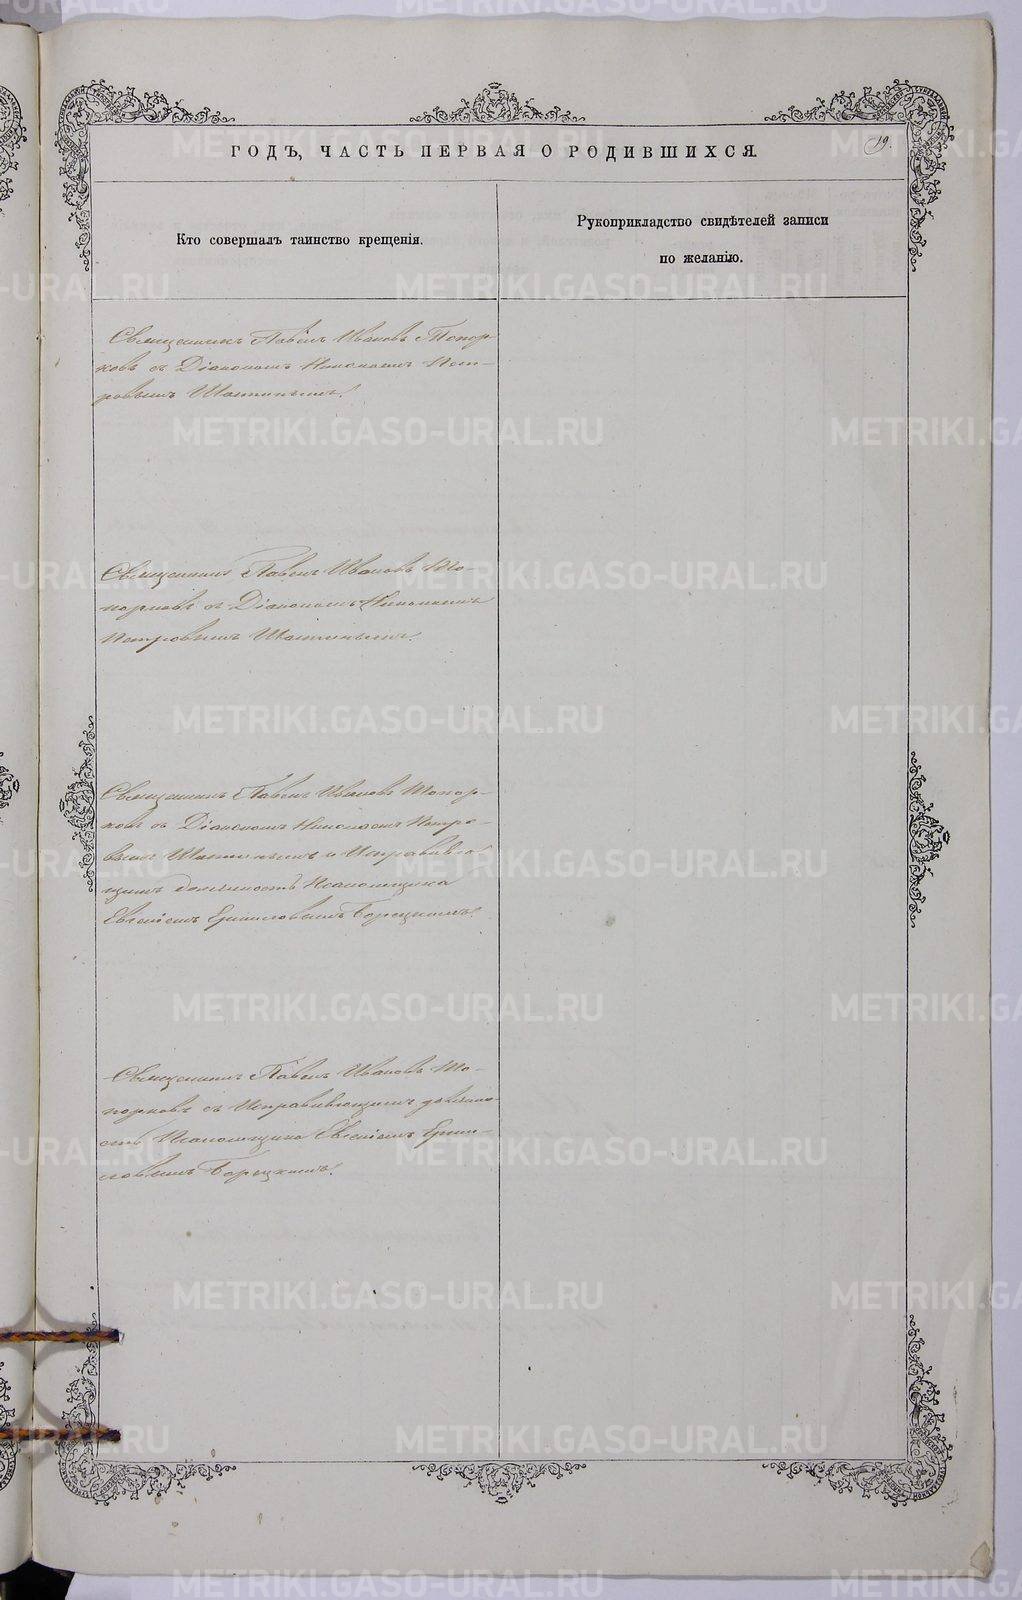 ГОДЪ, ЧАСТЬ ПЕРВАЯ О РОДИВШИХСЯ.
19.
Кто совершалъ таинство крещенія.
Рукоприкладство свидѣтелей записи
по желанію.
Священникъ Павелъ Ивановъ Топор-
ковъ съ Діакономъ Николаемъ Пет-
ровымъ Шастинымъ.
Священникъ Павелъ Ивановъ То-
порковъ съ Діакономъ Николаемъ
Петровымъ Шастинымъ.
Священникъ Павелъ Ивановъ Топор-
ковъ съ Діакономъ Николаемъ Петро-
вымъ Шастинымъ и Исправляю
щимъ должность Псаломщика
Евгеніемъ Ермиловымъ Борецкимъ.
Священникъ Павелъ Ивановъ То-
порковъ съ Исправляющимъ должно
сть Псаломщика Евгеніемъ Ерми-
ловымъ Борецкимъ.
METRIKI.GASO-URAL.RU